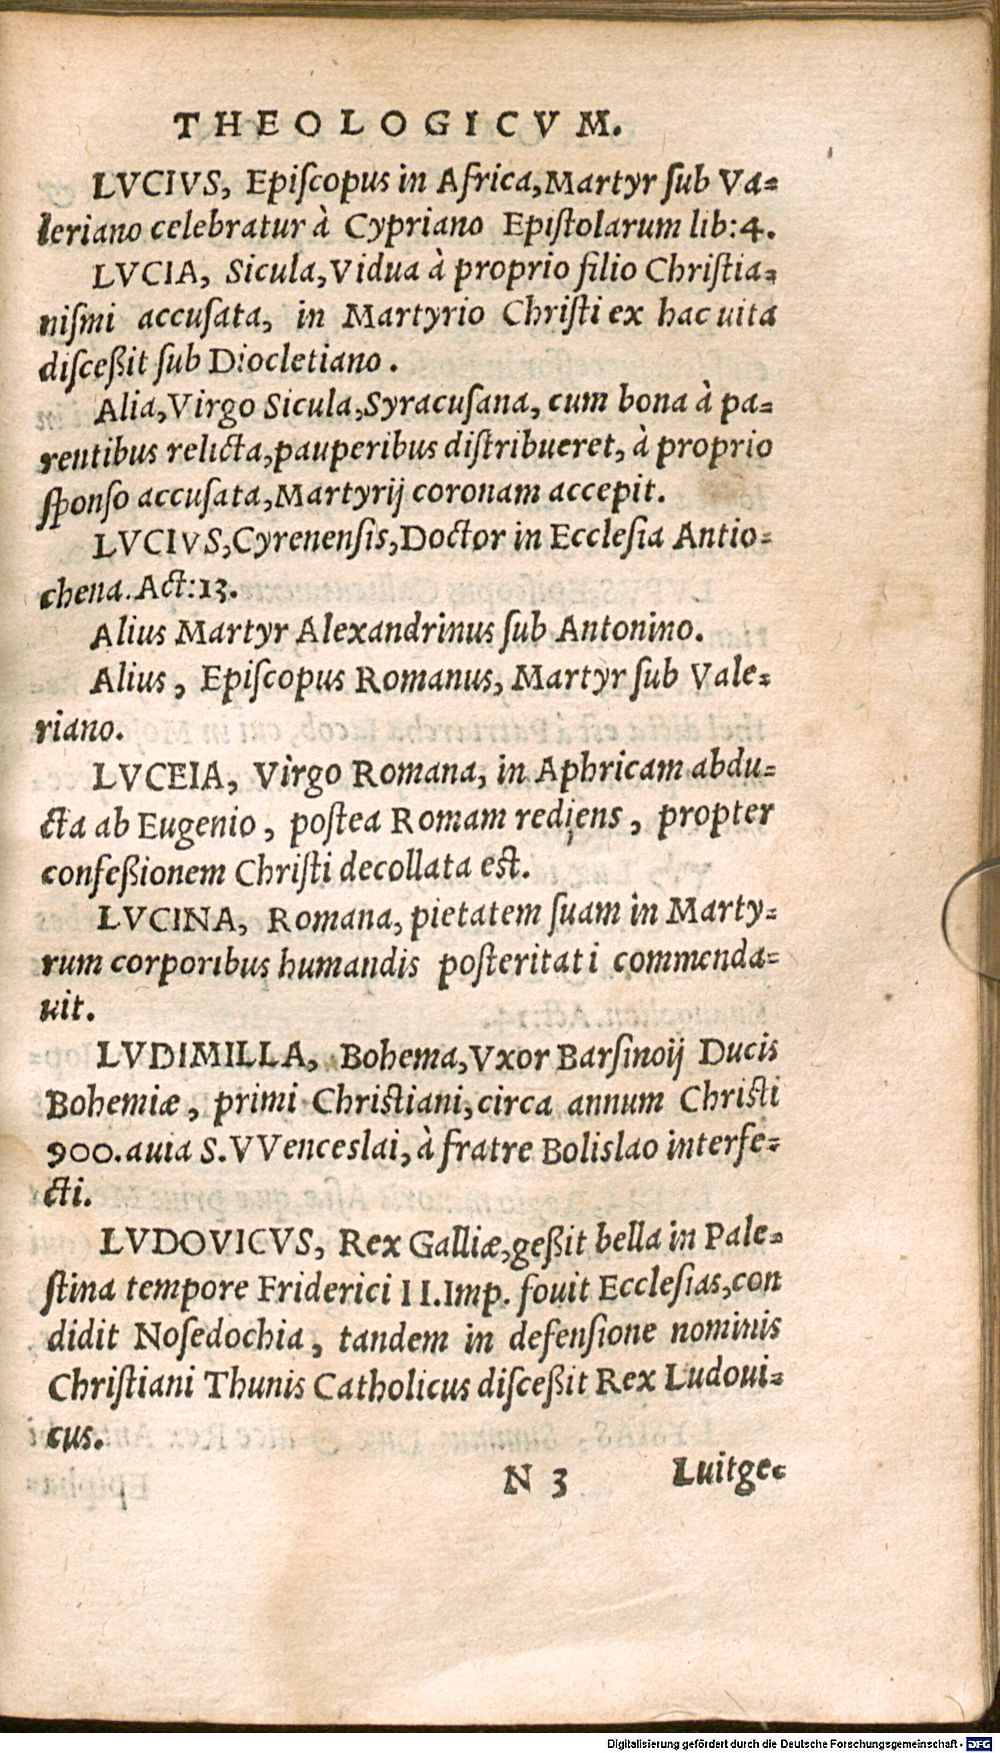 THEOLOGICVM.
LVCIVS, Epiſcopus in Africa, Martyr ſub Va-
leriano celebratur à Cypriano Epiſtolarum lib: 4.
LVCIA, Sicula, Vidua à proprio filio Chriſtia-
niſmi accuſata, in Martyrio Chriſti ex hac uita
diſceßit ſub Diocletiano.
Alia, Virgo Sicula, Syracuſana, cum bona à pa-
rentibus relicta, pauperibus diſtribueret, à proprio
ſponſo accuſata, Martyrij coronam accepit.
LVCIVS, Cyrenenſis, Doctor in Eccleſia Antio-
chena. Act: 13.
Alius Martyr Alexandrinus ſub Antonino.
Alius, Epiſcopus Romanus, Martyr ſub Vale-
riano.
LVCEIA, Virgo Romana, in Aphricam abdu-
cta ab Eugenio, poſtea Romam rediens, propter
confeßionem Chriſti decollata eſt.
LVCINA, Romana, pietatem ſuam in Marty-
rum corporibus humandis poſteritati commenda-
uit.
LVDIMILLA, Bohema, Vxor Barſinoij Ducis
Bohemiæ, primi Chriſtiani, circa annum Chriſti
900. auia S. VVenceslai, à fratre Bolislao interfe-
cti.
LVDOVICVS, Rex Galliæ, geßit bella in Pale-
ſtina tempore Friderici II. Imp. fouit Eccleſias, con
didit Noſedochia, tandem in defenſione nominis
Chriſtiani Thunis Catholicus diſceßit Rex Ludoui-
cus.
N 3 Luitge-
Digitalisierung gefördert durch die Deutsche Forschungsgemeinschaft - DFG